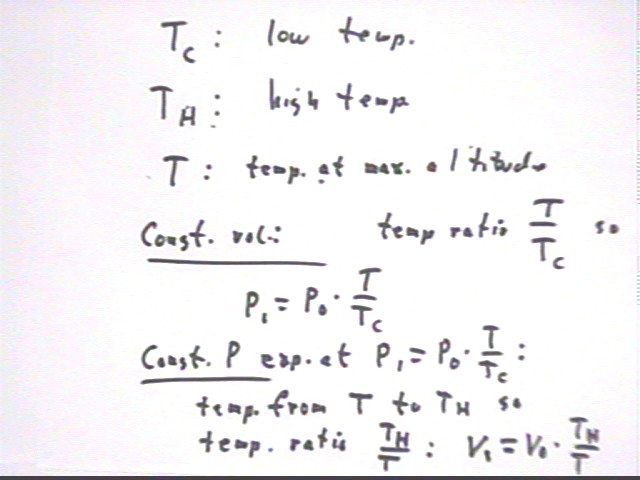 T_C : low temp.
T_H : high temp
T : temp. at max. altitude
Const. vol.: temp ratio T/T_C so
P_1 = P_0 · T/T_C
Const. P exp. at P_1 = P_0 · T/T_C :
temp. from T to T_H so
temp. ratio T_H/T : V_1 = V_0 · T_H/T